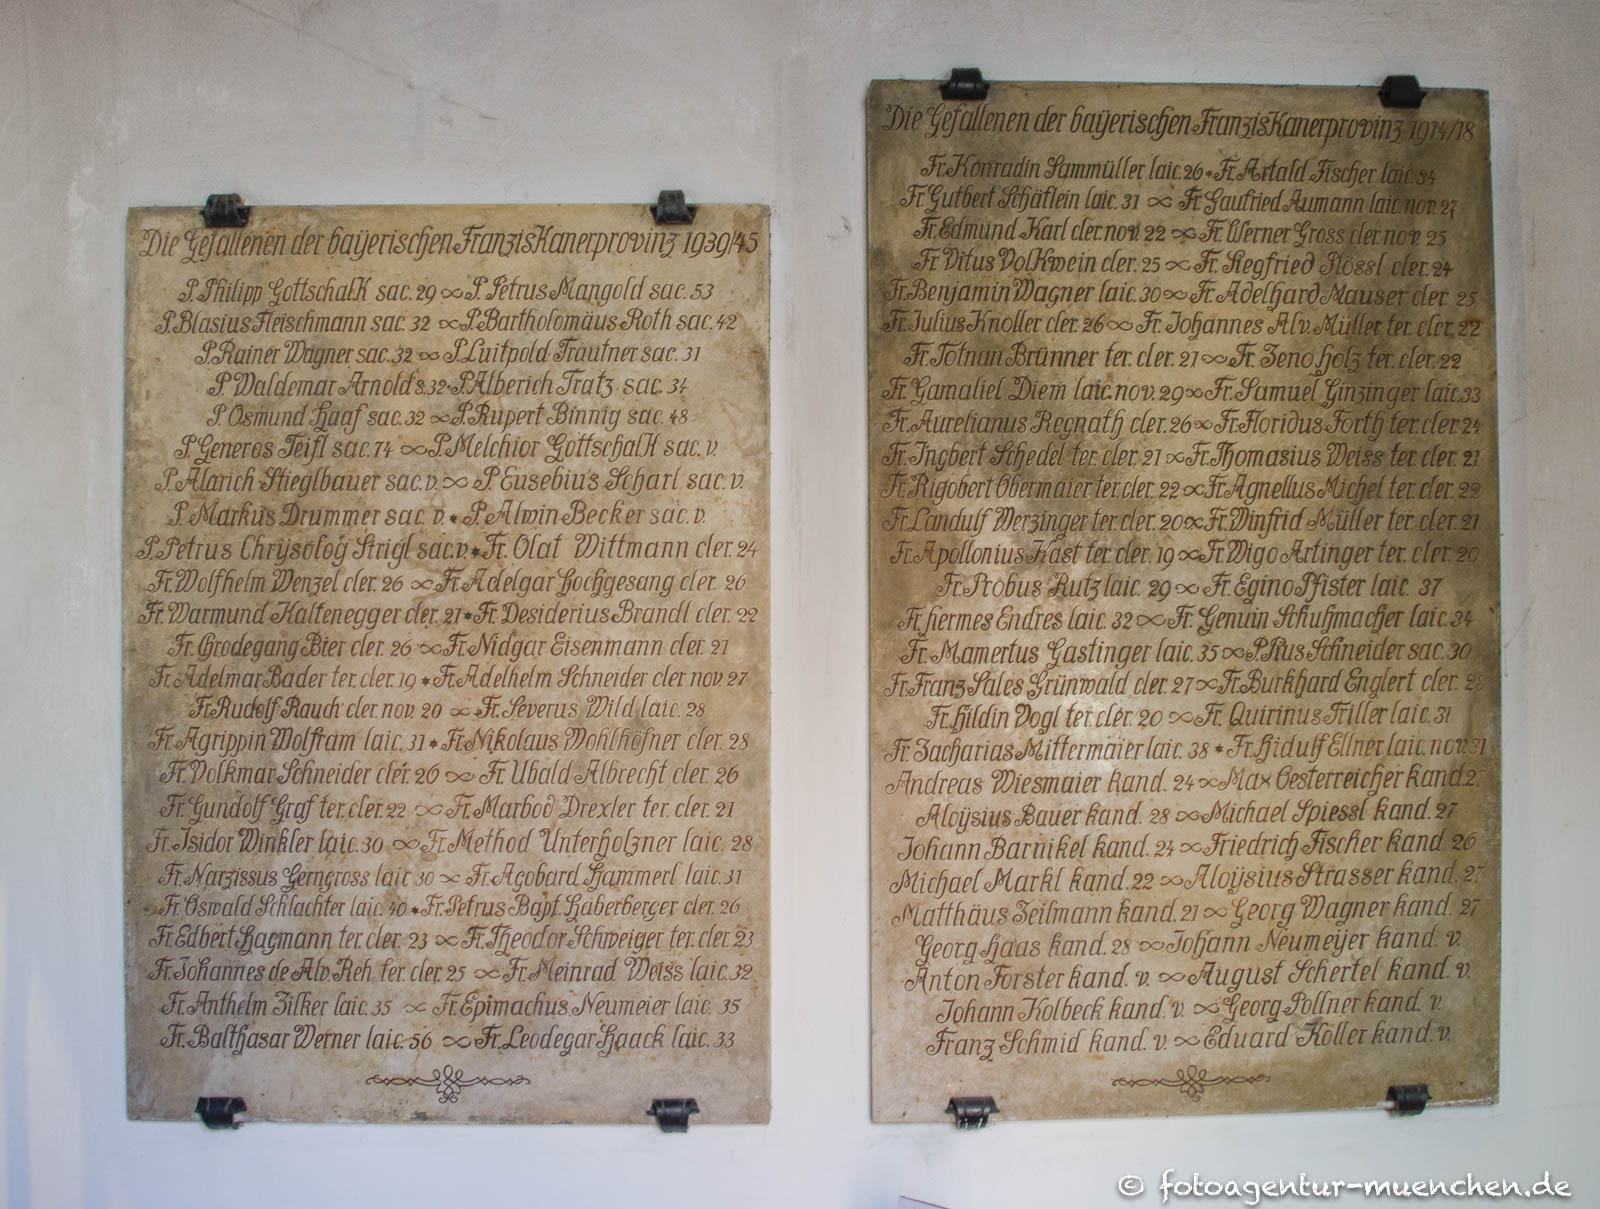 Die Gefallenen der bayerischen Franziskanerprovinz 1939/45
P. Philipp Gottschalk sac. 29 ∞ P. Petrus Mangold sac. 53
P. Blasius Fleischmann sac. 32 ∞ P. Bartholomäus Roth sac. 42
P. Rainer Wagner sac. 32 ∞ P. Luitpold Trautner sac. 31
P. Waldemar Arnold s. 32 * P. Alberich Tratz sac. 34
P. Osmund Haaf sac. 32 ∞ P. Rupert Binnig sac. 48
P. Generos Teifl sac. 74 ∞ P. Melchior Gottschalk sac. v.
P. Alarich Stieglbauer sac. v. ∞ P. Eusebius Scharl sac. v.
P. Markus Drummer sac. v. * P. Alwin Becker sac. v.
P. Petrus Chrysolog Strigl sac. v. * Fr. Olaf Wittmann cler. 24
Fr. Wolfhelm Wenzel cler. 26 ∞ Fr. Adelgar Hochgesang cler. 26
Fr. Warmund Kaltenegger cler. 21 * Fr. Desiderius Brandl cler. 22
Fr. Chrodegang Bier cler. 26 ∞ Fr. Nidgar Eisenmann cler. 21
Fr. Adelmar Bader ter. cler. 19 * Fr. Adelhelm Schneider cler. nov. 27
Fr. Rudolf Rauch cler. nov. 20 ∞ Fr. Severus Wild laic. 28
Fr. Agrippin Wolfram laic. 31 * Fr. Nikolaus Wohlhöfner cler. 28
Fr. Volkmar Schneider cler. 26 ∞ Fr. Ubald Albrecht cler. 26
Fr. Gundolf Graf ter. cler. 22 ∞ Fr. Marbod Drexler ter. cler. 21
Fr. Isidor Winkler laic. 30 ∞ Fr. Method Unterholzner laic. 28
Fr. Narzissus Gerngross laic 30 ∞ Fr. Agobard Hammerl laic. 31
Fr. Oswald Schlachter laic. 40 * Fr. Petrus Bapt. Haberberger cler. 26
Fr. Edbert Hagmann ter. cler. 23 ∞ Fr. Theodor Schweiger ter. cler. 23
Fr. Johannes de Alv. Reh ter. cler. 25 ∞ Fr. Meinrad Weiss laic. 32
Fr. Anthelm Zilker laic. 35 ∞ Fr. Epimachus Neumeier laic. 35
Fr. Balthasar Werner laic. 56 ∞ Fr. Leodegar Haack laic. 33
Die Gefallenen der bayerischen Franziskanerprovinz 1914/18
Fr. Konradin Sammüller laic. 26 * Fr. Artald Fischer laic. 34
Fr. Gutbert Schäflein laic. 31 ∞ Fr. Gaufried Aumann laic. nov. 27
Fr. Edmund Karl cler. nov. 22 ∞ Fr. Werner Gross cler. nov. 25
Fr. Vitus Volkwein cler. 25 ∞ Fr. Siegfried Stössl cler. 24
Fr. Benjamin Wagner laic. 30 ∞ Fr. Adelhard Mauser cler. 25
Fr. Julius Knoller cler. 26 ∞ Fr. Johannes Alv. Müller ter. cler. 22
Fr. Totnan Brünner ter. cler. 21 ∞ Fr. Zeno Holz ter. cler. 22
Fr. Gamaliel Diem laic. nov. 29 ∞ Fr. Samuel Ginzinger laic. 33
Fr. Aurelianus Regnath cler. 26 ∞ Fr. Floridus Forth ter. cler. 24
Fr. Ingbert Schedel ter. cler. 21 ∞ Fr. Thomasius Weiss ter. cler. 21
Fr. Rigobert Obermaier ter. cler. 22 ∞ Fr. Agnellus Michel ter. cler. 22
Fr. Landulf Werzinger ter. cler. 20 ∞ Fr. Winfrid Müller ter. cler. 21
Fr. Apollonius Kast ter. cler. 19 ∞ Fr. Wigo Artinger ter. cler. 20
Fr. Probus Rutz laic. 29 ∞ Fr. Egino Pfister laic. 37
Fr. Hermes Endres laic. 32 ∞ Fr. Genuin Schuhmacher laic. 34
Fr. Mamertus Gastinger laic. 35 ∞ P. Pius Schneider sac. 30
Fr. Franz Sales Grünwald cler. 27 ∞ Fr. Burkhard Englert cler. 28
Fr. Hildin Vogl ter. cler. 20 ∞ Fr. Quirinus Stiller laic. 31
Fr. Zacharias Mittermaier laic. 38 * Fr. Hidulf Ellner laic. nov. 31
Andreas Wiesmaier kand. 24 ∞ Max Oesterreicher kand. 27
Aloysius Bauer kand. 28 ∞ Michael Spiessl kand. 27
Johann Barnikel kand. 24 ∞ Friedrich Fischer kand. 26
Michael Markl kand. 22 ∞ Aloysius Strasser kand. 27
Matthäus Zeilmann kand. 21 ∞ Georg Wagner kand. 27
Georg Haas kand. 28 ∞ Johann Neumeyer kand. v.
Anton Forster kand. v. ∞ August Schertel kand. v.
Johann Kolbeck kand. v. ∞ Georg Pollner kand. v.
Franz Schmid kand. v. ∞ Eduard Köller kand. v.
© fotoagentur-muenchen.de